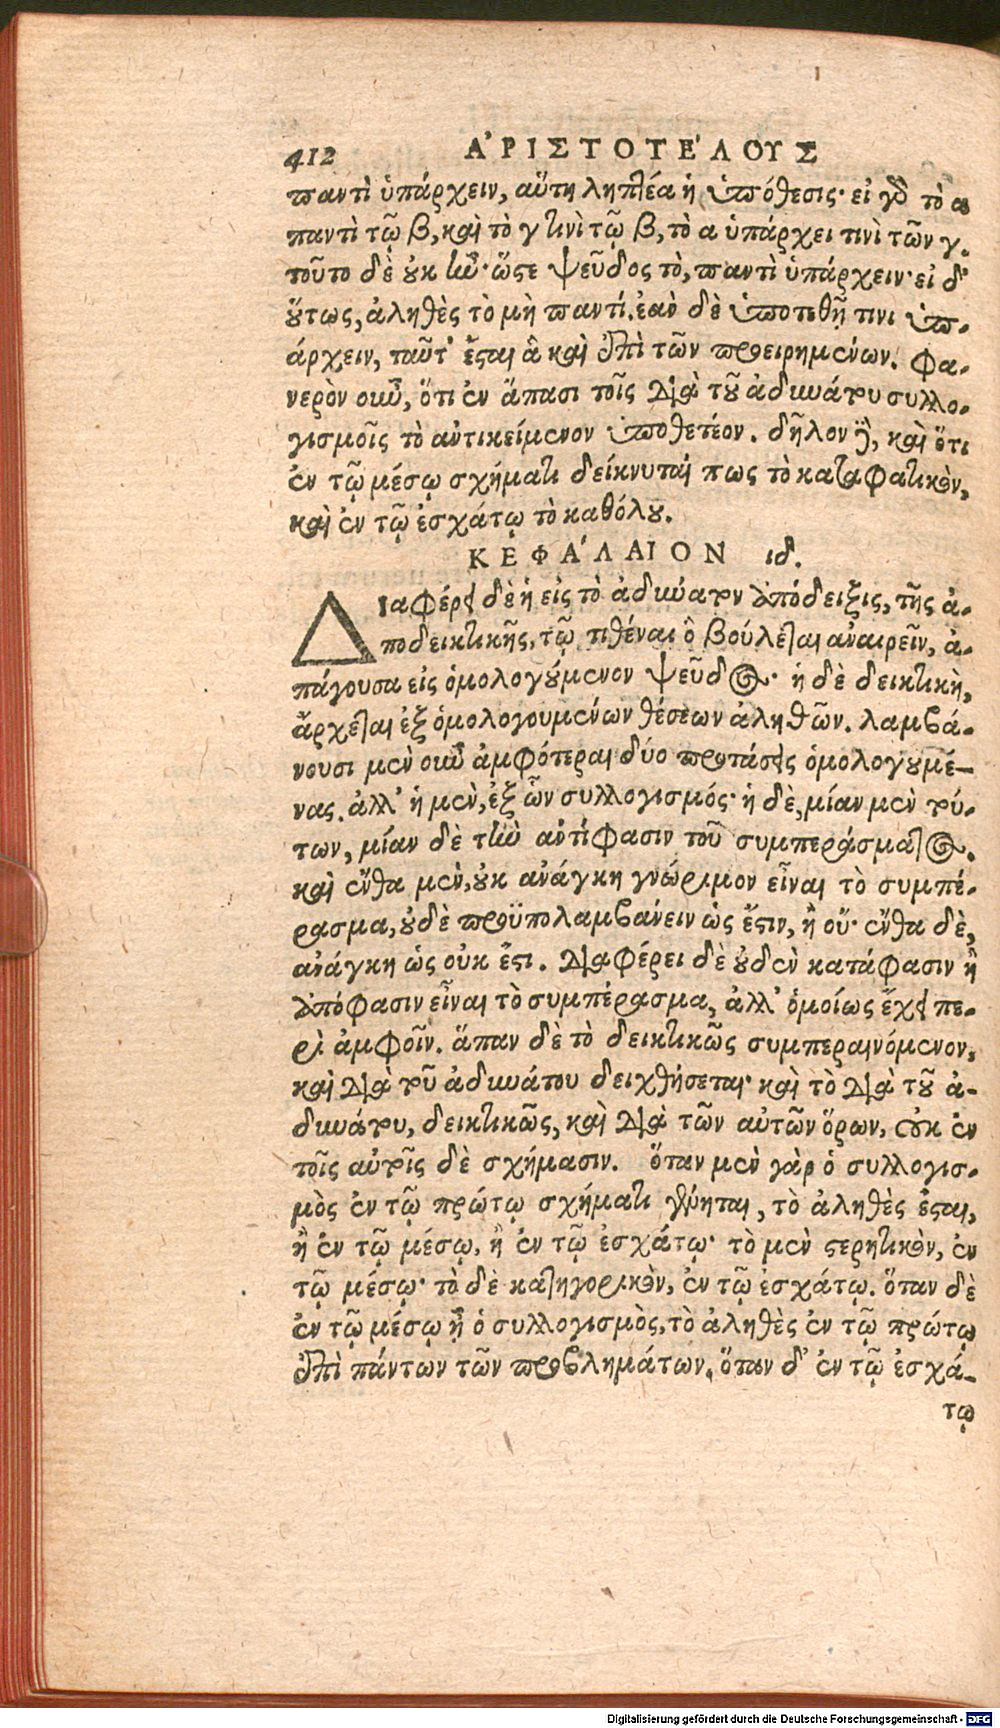 412 ἈΡΙΣΤΟΤΈΛΟΥΣ
παντὶ ὑπάρχειν, αὕτη ληπτέα ἡ ὑπόθεσις· εἰ γὸ τὸ α
παντὶ τῷ β, καὶ τὸ γ τινὶ τῷ β, τὸ α ὑπάρχει τινὶ τῶν γ.
τοῦτο δὲ οὐκ ἦν· ὥστε ψεῦδος τὸ, παντὶ ὑπάρχειν· εἰ δ'
οὕτως, ἀληθὲς τὸ μὴ παντί. ἐὰν δὲ ὑποτεθῇ τινι ὑπ-
άρχειν, ταῦτ' ἔσται ἃ καὶ ἐπὶ τῶν προειρημένων. Φα-
νερὸν οὖν, ὅτι ἐν ἅπασι τοῖς διὰ τοῦ ἀδυνάτου συλλο-
γισμοῖς τὸ ἀντικείμενον ὑποθετέον. δῆλον δὲ, καὶ ὅτι
ἐν τῷ μέσῳ σχήματι δείκνυταί πως τὸ καταφατικὸν,
καὶ ἐν τῷ ἐσχάτῳ τὸ καθόλου.
ΚΕΦΆΛΑΙΟΝ ιδ.
Διαφέρει δὲ ἡ εἰς τὸ ἀδύνατον ἀπόδειξις, τῆς ἀ-
ποδεικτικῆς, τῷ τιθέναι ὃ βούλεται ἀναιρεῖν, ἀ-
πάγουσα εἰς ὁμολογούμενον ψεῦδος· ἡ δὲ δεικτικὴ,
ἄρχεται ἐξ ὁμολογουμένων θέσεων ἀληθῶν. λαμβά-
νουσι μὲν οὖν ἀμφότεραι δύο προτάσεις ὁμολογουμέ-
νας. ἀλλ' ἡ μὲν, ἐξ ὧν συλλογισμός· ἡ δὲ, μίαν μὲν τού-
των, μίαν δὲ τὴν ἀντίφασιν τοῦ συμπεράσματος.
καὶ ἔνθα μὲν, οὐκ ἀνάγκη γνώριμον εἶναι τὸ συμπέ-
ρασμα, οὐδὲ προϋπολαμβάνειν ὡς ἔστιν, ἢ οὔ· ἔνθα δὲ,
ἀνάγκη ὡς οὐκ ἔστι. Διαφέρει δὲ οὐδὲν κατάφασιν ἢ
ἀπόφασιν εἶναι τὸ συμπέρασμα, ἀλλ' ὁμοίως ἔχει πε-
ρὶ ἀμφοῖν. ἅπαν δὲ τὸ δεικτικῶς συμπεραινόμενον,
καὶ διὰ τοῦ ἀδυνάτου δειχθήσεται· καὶ τὸ διὰ τοῦ ἀ-
δυνάτου, δεικτικῶς, καὶ διὰ τῶν αὐτῶν ὅρων, οὐκ ἐν
τοῖς αὐτοῖς δὲ σχήμασιν. ὅταν μὲν γὰρ ὁ συλλογισ-
μὸς ἐν τῷ πρώτῳ σχήματι γένηται, τὸ ἀληθὲς ἔσται,
ἢ ἐν τῷ μέσῳ, ἢ ἐν τῷ ἐσχάτῳ· τὸ μὲν στερητικὸν, ἐν
τῷ μέσῳ· τὸ δὲ κατηγορικὸν, ἐν τῷ ἐσχάτῳ. ὅταν δὲ
ἐν τῷ μέσῳ ᾖ ὁ συλλογισμὸς, τὸ ἀληθὲς ἐν τῷ πρώτῳ
ἐπὶ πάντων τῶν προβλημάτων. ὅταν δ' ἐν τῷ ἐσχά-
τῳ
Digitalisierung gefördert durch die Deutsche Forschungsgemeinschaft - DFG